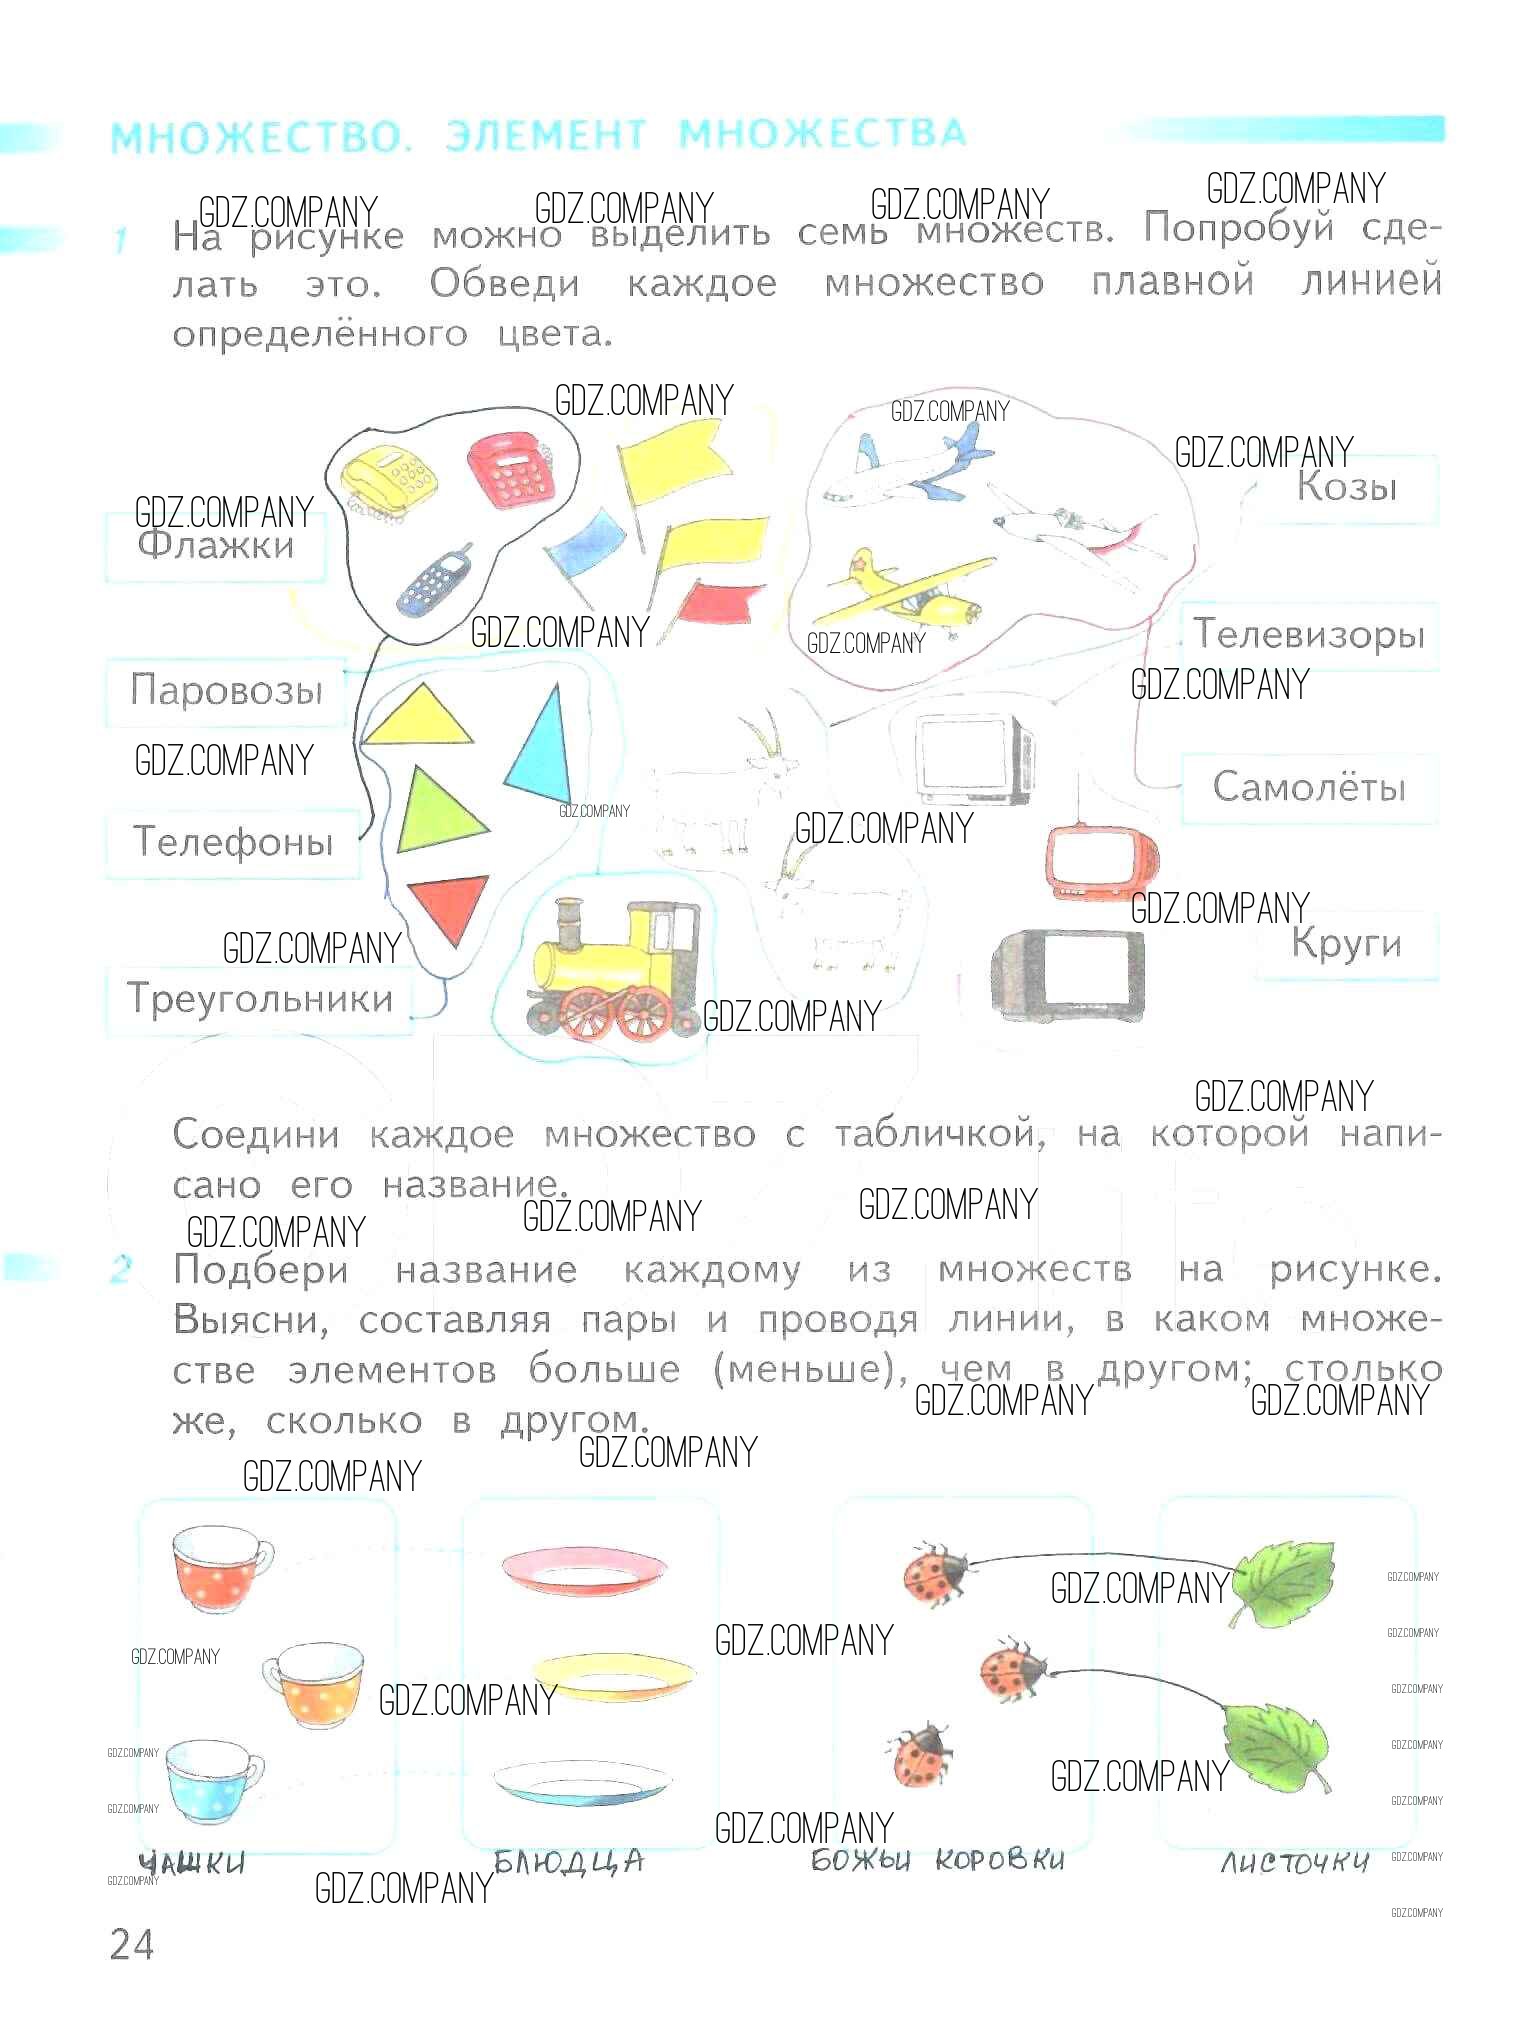 МНОЖЕСТВО. ЭЛЕМЕНТ МНОЖЕСТВА
GDZ.COMPANY GDZ.COMPANY GDZ.COMPANY GDZ.COMPANY
1 На рисунке можно выделить семь множеств. Попробуй сде-
лать это. Обведи каждое множество плавной линией
определённого цвета.
GDZ.COMPANY GDZ.COMPANY
GDZ.COMPANY
Козы
GDZ.COMPANY
Флажки
GDZ.COMPANY GDZ.COMPANY
Телевизоры
GDZ.COMPANY
Паровозы
GDZ.COMPANY
Самолёты
GDZ.COMPANY GDZ.COMPANY
Телефоны
GDZ.COMPANY
GDZ.COMPANY
Круги
Треугольники
GDZ.COMPANY
GDZ.COMPANY
Соедини каждое множество с табличкой, на которой напи-
сано его название.
GDZ.COMPANY GDZ.COMPANY GDZ.COMPANY
2 Подбери название каждому из множеств на рисунке.
Выясни, составляя пары и проводя линии, в каком множе-
стве элементов больше (меньше), чем в другом; столько
GDZ.COMPANY GDZ.COMPANY
же, сколько в другом.
GDZ.COMPANY GDZ.COMPANY
GDZ.COMPANY GDZ.COMPANY
GDZ.COMPANY GDZ.COMPANY
GDZ.COMPANY
GDZ.COMPANY GDZ.COMPANY
GDZ.COMPANY GDZ.COMPANY
GDZ.COMPANY
GDZ.COMPANY GDZ.COMPANY
GDZ.COMPANY
ЧАШКИ БЛЮДЦА БОЖЬИ КОРОВКИ ЛИСТОЧКИ GDZ.COMPANY
GDZ.COMPANY GDZ.COMPANY
GDZ.COMPANY
24